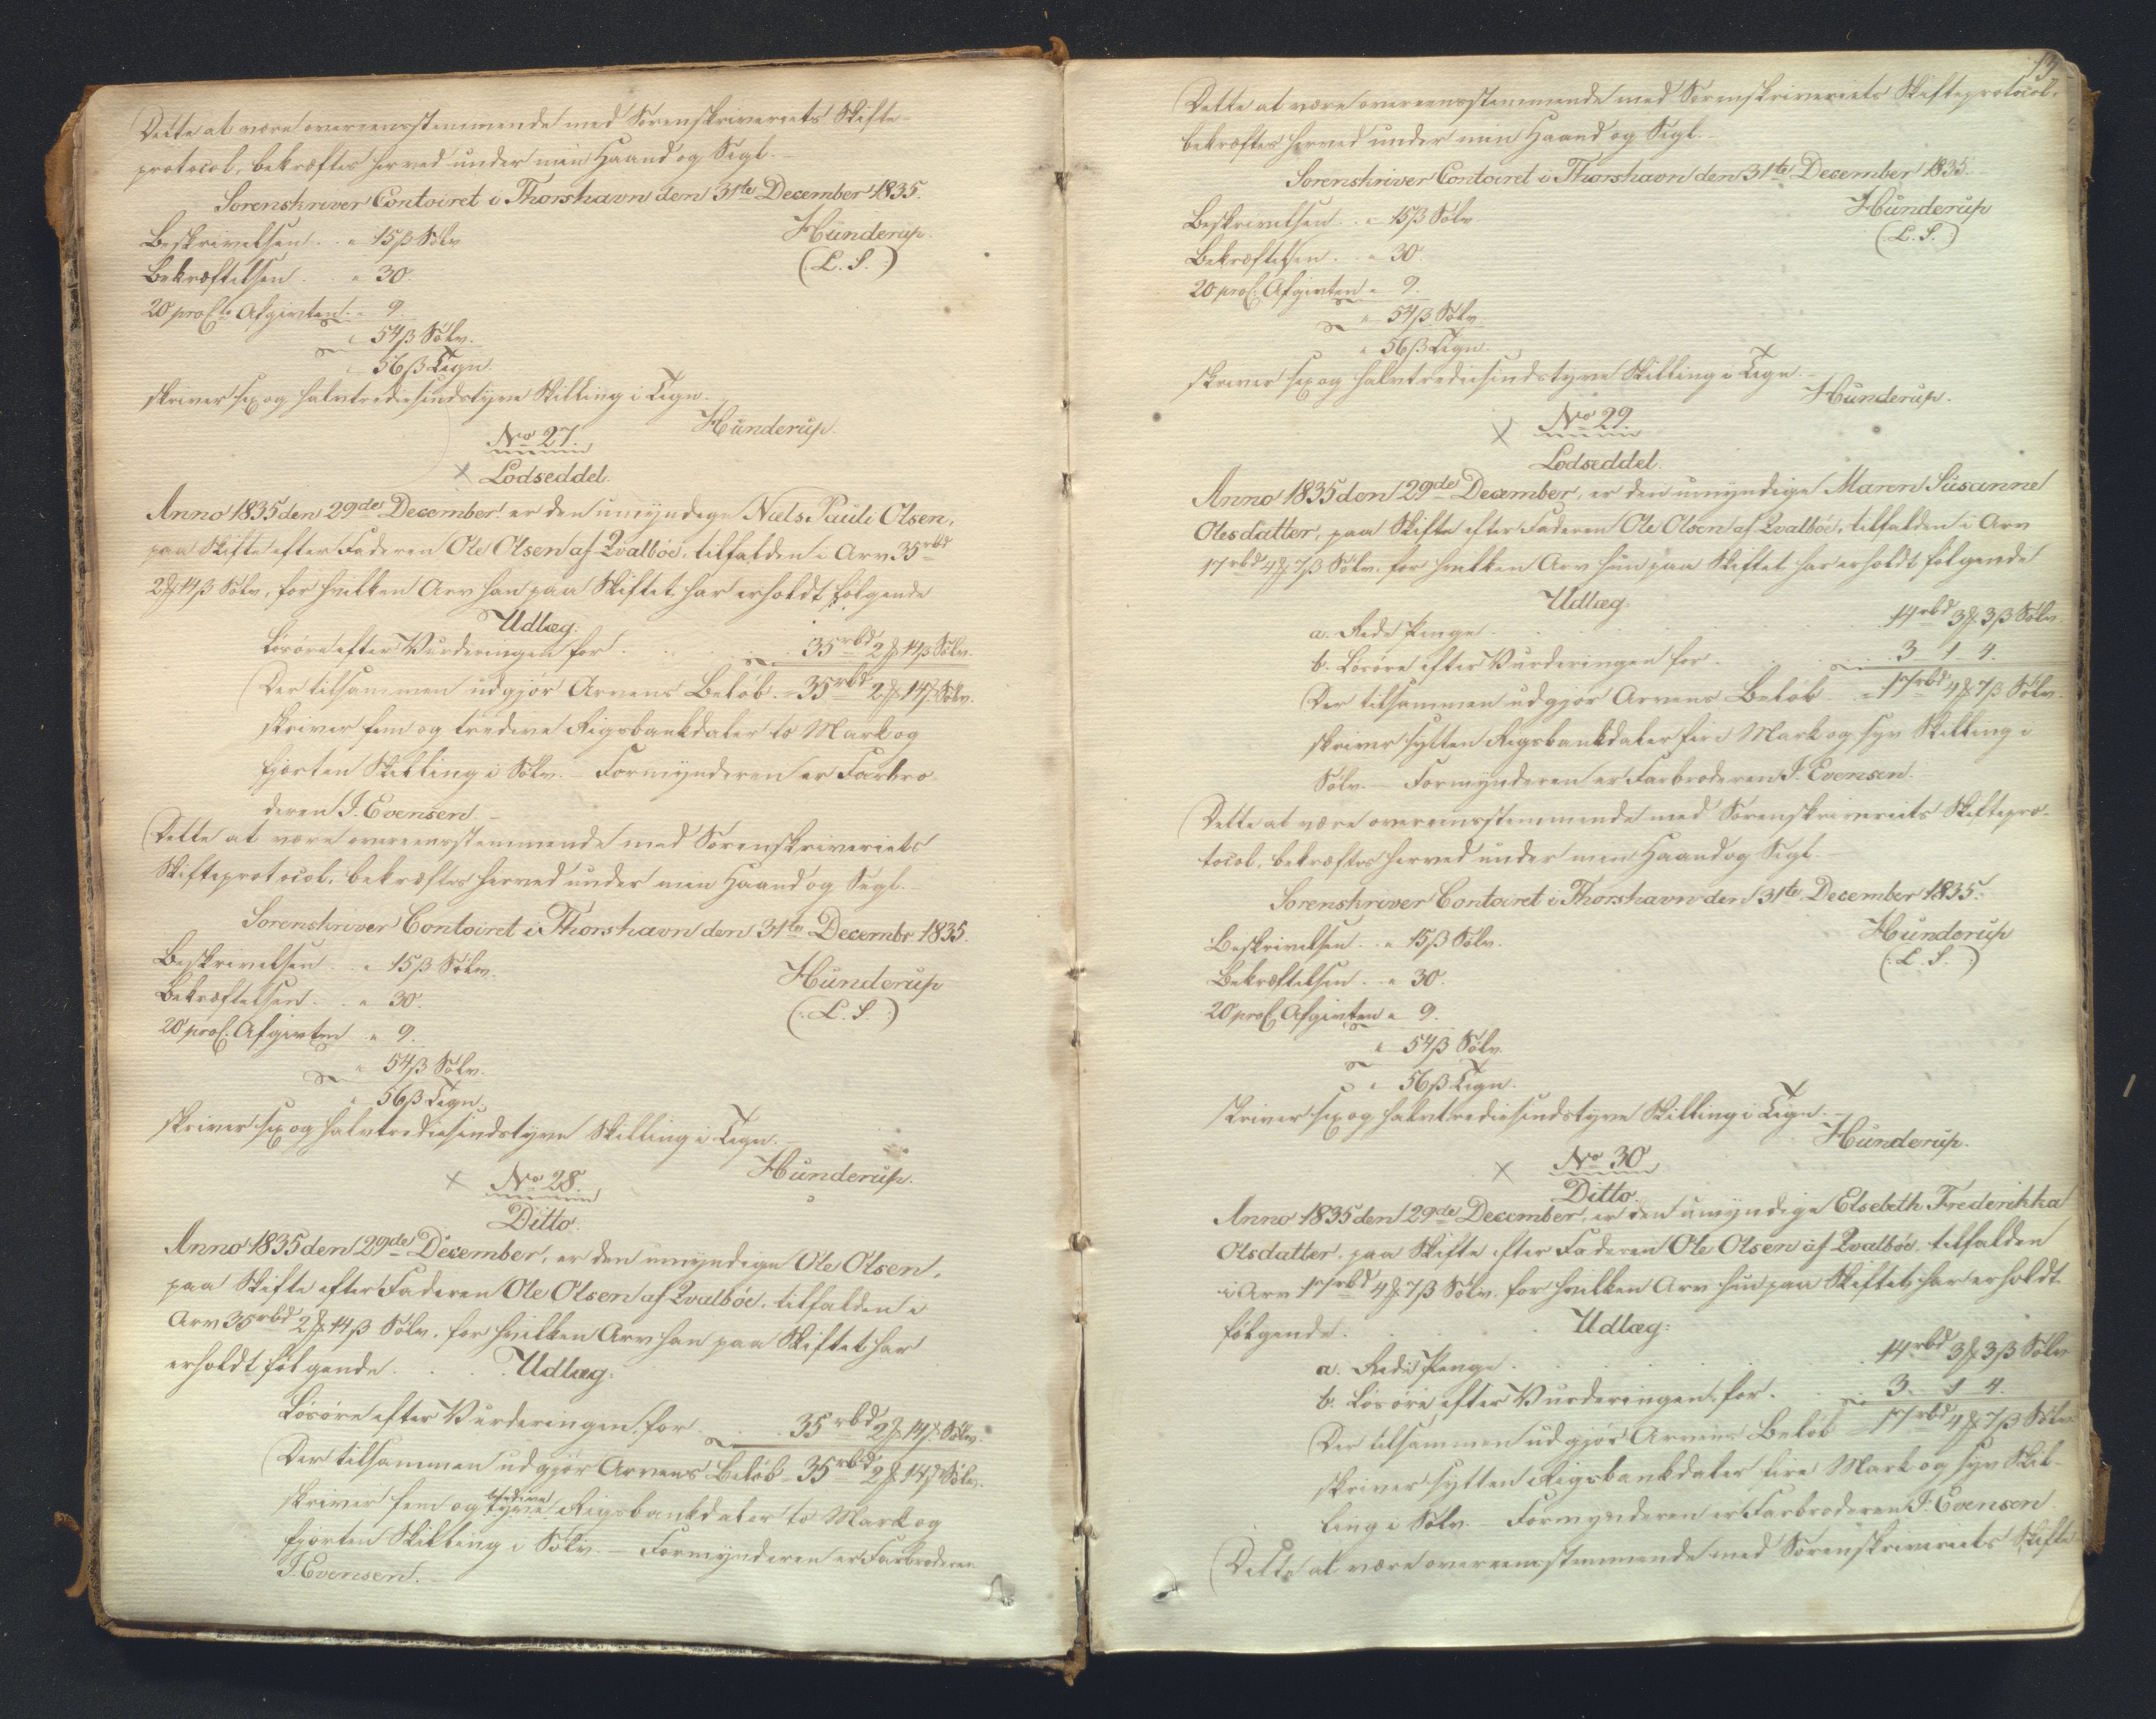 Dette at være overeensstemmende med Sorenskriveriets Skifte-
protocol, bekræftes herved under min Haand og Segl. –
Sorenskriver Contoiret i Thorshavn den 31te December 1835.
Beskrivelsen . . " 15 β Sølv
Hunderup.
Bekræftelsen . . " 30.
(L. S.)
20 proCto Afgivten . " 9.
" 54 β Sølv.
" 56 β Tegn.
skriver sex og halvtrediesindstyve Skilling i Tegn. –
Hunderup.
No 27.
Lodseddel.
Anno 1835 den 29de December er den umyndige Niels Pauli Olsen,
paa Skifte efter Faderen Ole Olsen af Qvalböe, tilfalden i Arv 35 rbd
2 ₰ 14 β Sølv, for hvilken Arv han paa Skiftet har erholdt følgende
Udlæg:
Løsøre efter Vurderingen for . . . . 35 rbd 2 ₰ 14 β Sølv.
Der tilsammen udgjør Arvens Beløb . = 35 rbd 2 ₰ 14 β Sølv.
skriver fem og tredive Rigsbankdaler to Mark og
fjorten Skilling i Sølv. – Formynderen er Farbro-
deren J. Evensen. –
Dette at være overeensstemmende med Sorenskriveriets
Skifteprotocol, bekræftes herved under min Haand og Segl. –
Sorenskriver Contoiret i Thorshavn den 31te Decembr 1835.
Beskrivelsen . . " 15 β Sølv.
Hunderup
Bekræftelsen . . " 30.
(: L. S :)
20 proC. Afgivten . " 9.
" 54 β Sølv.
" 56 β Tegn.
skriver sex og halvtrediesindstyve Skilling i Tegn. –
Hunderup.
No 28.
Ditto.
Anno 1835 den 29de December, er den umyndige Ole Olsen,
paa Skifte efter Faderen Ole Olsen af Qvalböe, tilfalden i
Arv 35 rbd 2 ₰ 14 β Sølv, for hvilken Arv han paa Skiftet har
erholdt følgende . . . Udlæg:
Løsøre efter Vurderingen for . . . 35 rbd 2 ₰ 14 β Sølv.
Der tilsammen udgjør Arvens Beløb = 35 rbd 2 ₰ 14 β Sølv.
tredive
skriver fem og tyve Rigsbankdaler to Mark og
fjorten Skilling i Sølv. – Formynderen er Farbroderen
J. Evensen. –
13
Dette at være overeensstemmende med Sorenskriveriets Skifteprotocol,
bekræftes herved under min Haand og Segl. –
Sorenskriver Contoiret i Thorshavn den 31te December 1835. –
Beskrivelsen . . " 15 β Sølv
Hunderup
Bekræftelsen . . " 30.
(L. S.)
20 proC. Afgivten " 9.
" 54 β Sølv.
" 56 β Tegn.
skriver sex og halvtrediesindstyve Skilling i Tegn. –
Hunderup.
No 29.
Lodseddel.
Anno 1835 den 29de December, er den umyndige Maren Susanne
Olesdatter, paa Skifte efter Faderen Ole Olsen af Qvalböe, tilfalden i Arv
17 rbd 4 ₰ 7 β Sølv, for hvilken Arv hun paa Skiftet har erholdt følgende
Udlæg:
a. Rede Penge . . . . . . 14 rbd 3 ₰ 3 β Sølv.
b. Løsøre efter Vurderingen for . . . . 3 1 4.
Der tilsammen udgjør Arvens Beløb . . = 17 rbd 4 ₰ 7 β Sølv.
skriver sytten Rigsbankdaler fire Mark og syv Skilling i
Sølv. – Formynderen er Farbroderen J. Evensen.
Dette at være overeensstemmende med Sorenskriveriets Skiftepro-
tocol, bekræftes herved under min Haand og Segl. –
Sorenskriver Contoiret i Thorshavn den 31te December 1835.
Beskrivelsen . . " 15 β Sølv.
Hunderup
Bekræftelsen . . " 30.
(: L. S. :)
20 proC. Afgivten " 9.
" 54 β Sølv
" 56 β Tegn.
skriver sex og halvtrediesindstyve Skilling i Tegn. –
Hunderup.
No 30
Ditto.
Anno 1835 den 29de December, er den umyndige Elsebeth Frederikka
Olsdatter, paa Skifte efter Faderen Ole Olsen af Qvalböe, tilfalden
i Arv 17 rbd 4 ₰ 7 β Sølv, for hvilken Arv hun paa Skiftet har erholdt
følgende . . . Udlæg:
a. Rede Penge . . . . . . 14 rbd 3 ₰ 3 β Sølv
b. Løsøre efter Vurderingen for . . . 3. 1 4.
Der tilsammen udgjør Arvens Beløb = 17 rbd 4 ₰ 7 β Sølv
skriver sytten Rigsbankdaler fire Mark og syv Skil-
ling i Sølv. – Formynderen er Farbroderen J. Evensen.
Dette at være overeensstemmende med Sorenskriveriets Skifte-